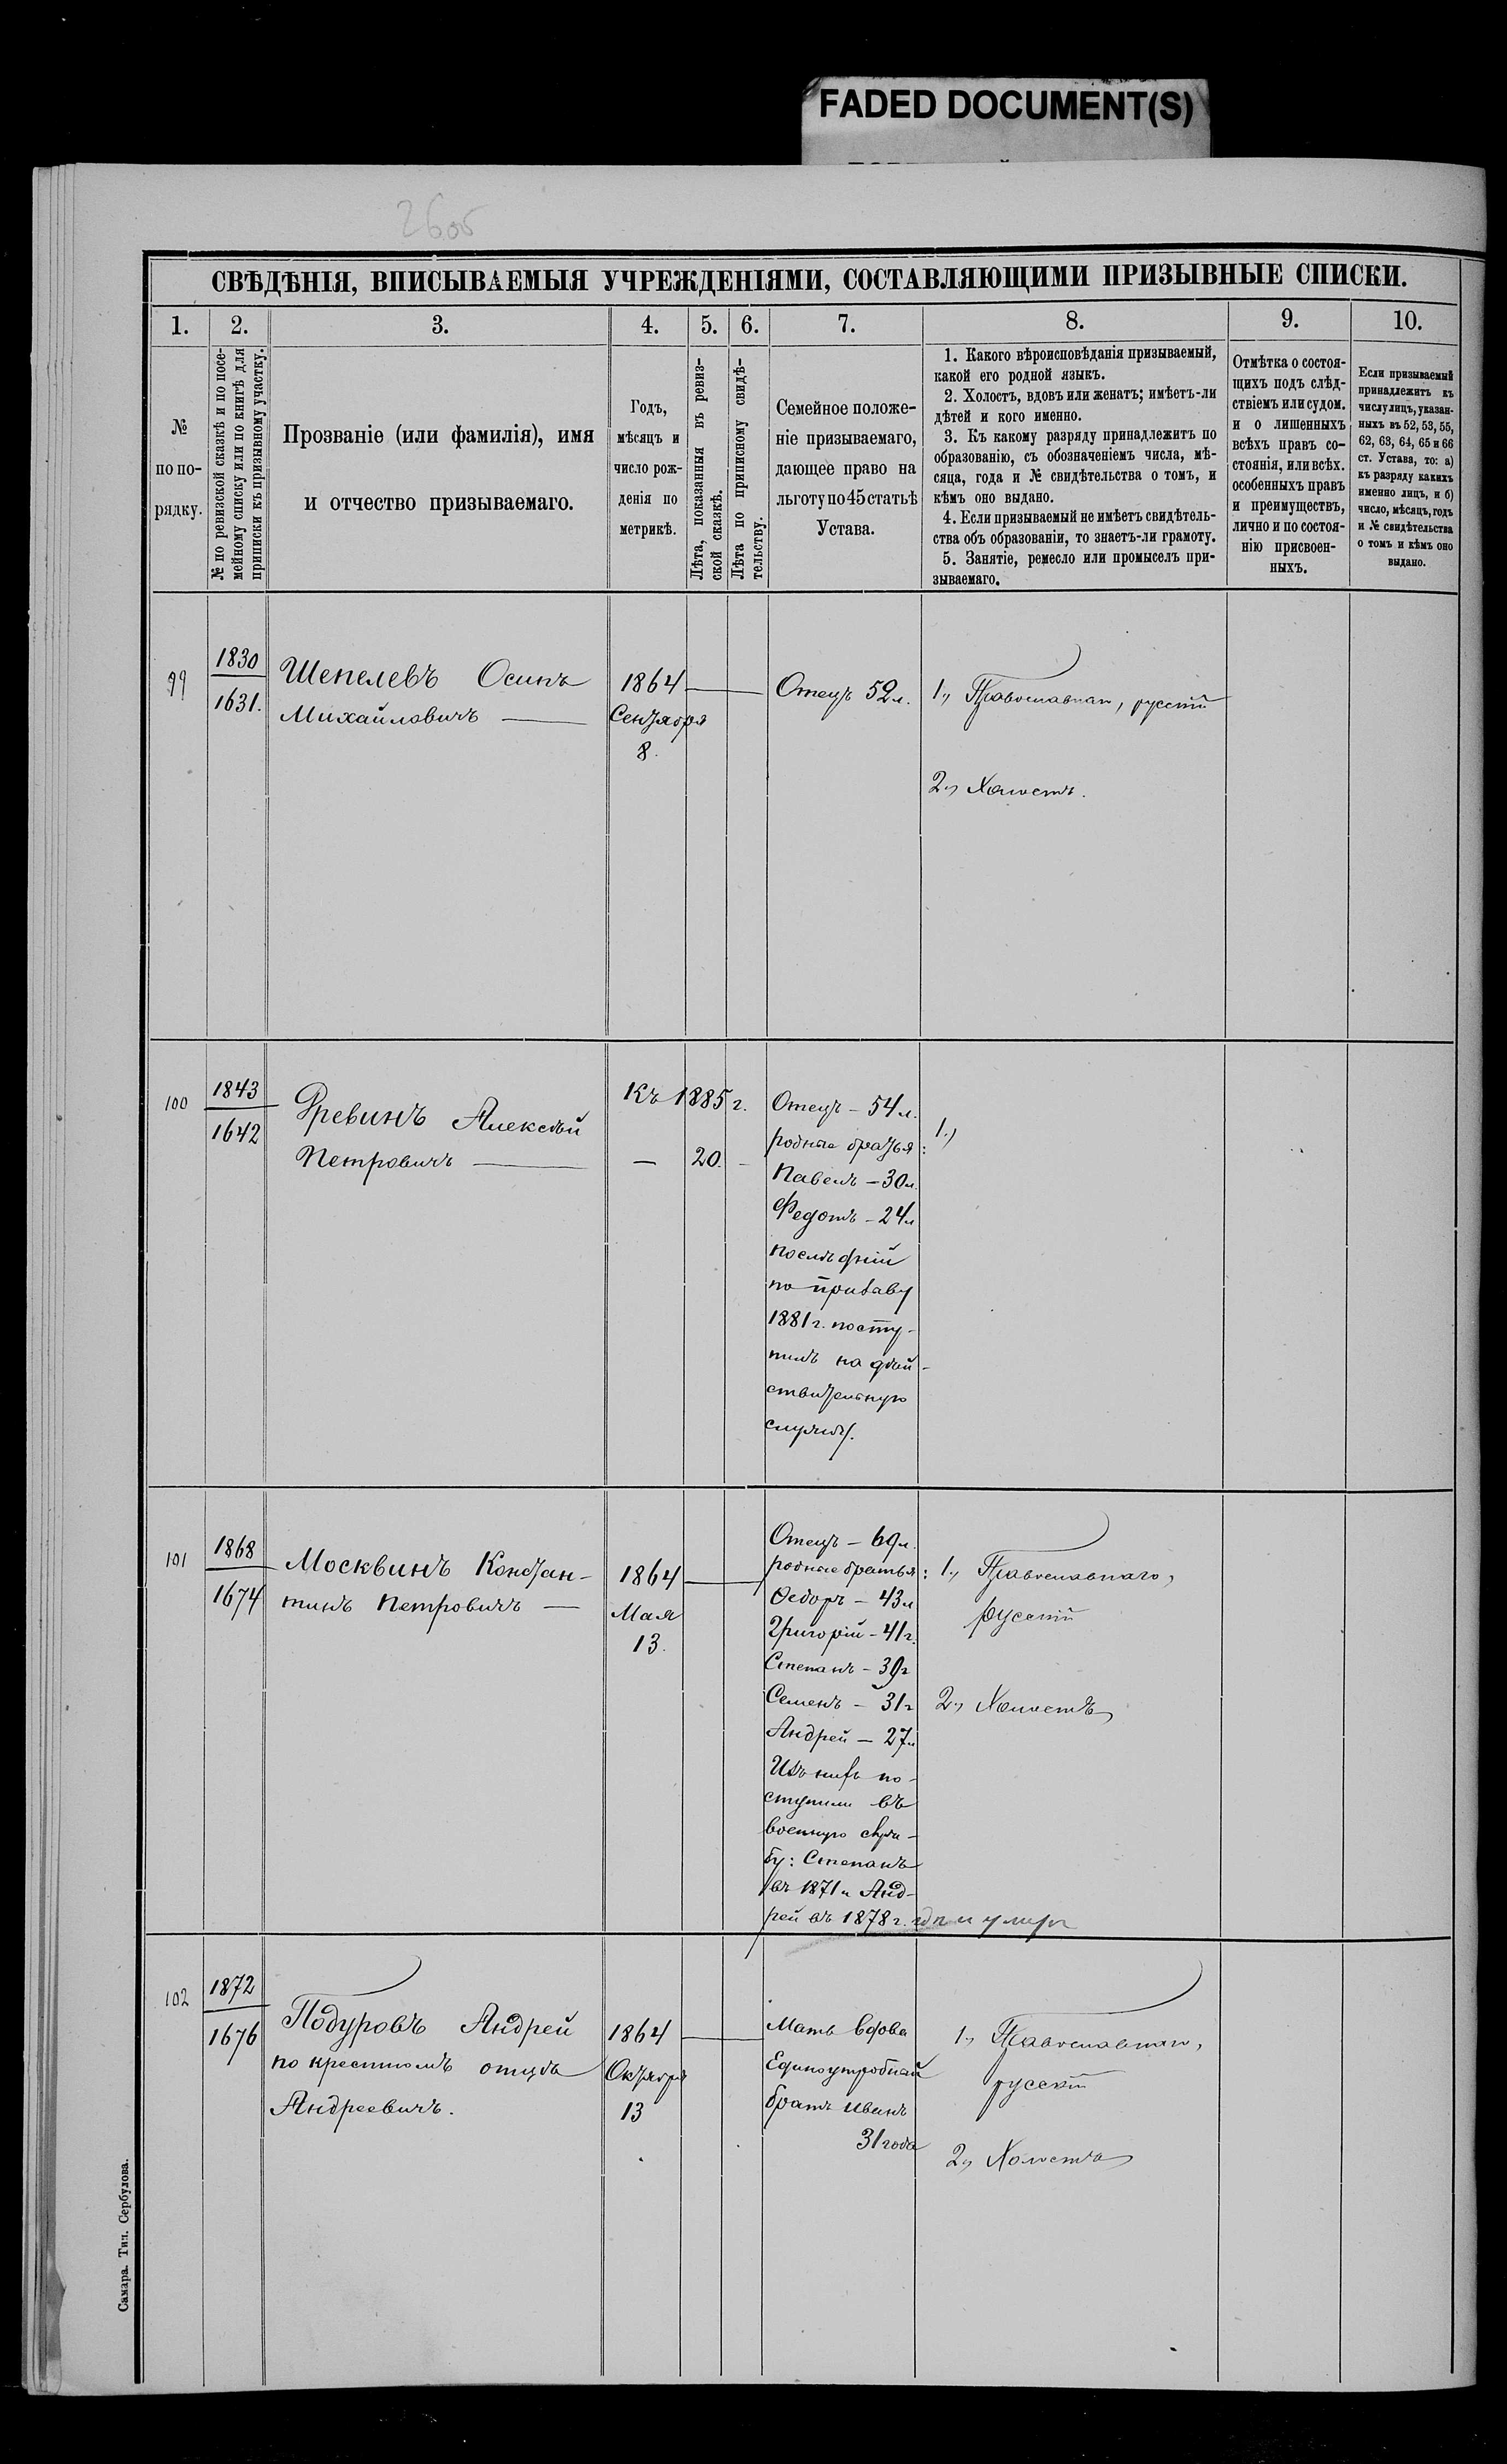 FADED DOCUMENT(S)
2605
СВѢДѢНІЯ, ВПИСЫВАЕМЫЯ УЧРЕЖДЕНІЯМИ, СОСТАВЛЯЮЩИМИ ПРИЗЫВНЫЕ СПИСКИ.
1.
2.
3.
4.
5.
6.
7.
8.
9.
10.
№
по по-
рядку.
№ по ревизской сказкѣ и по посе-
мейному списку или по книгѣ для
приписки къ призывному участку.
Прозваніе (или фамилія), имя
и отчество призываемаго.
Годъ,
мѣсяцъ и
число рож-
денія по
метрикѣ.
Лѣта, показанныя въ ревиз-
ской сказкѣ.
Лѣта по приписному свидѣ-
тельству.
Семейное положе-
ніе призываемаго,
дающее право на
льготу по 45 статьѣ
Устава.
1. Какого вѣроисповѣданія призываемый,
какой его родной языкъ.
2. Холостъ, вдовъ или женатъ; имѣетъ-ли
дѣтей и кого именно.
3. Къ какому разряду принадлежитъ по
образованію, съ обозначеніемъ числа, мѣ-
сяца, года и № свидѣтельства о томъ, и
кѣмъ оно выдано.
4. Если призываемый не имѣетъ свидѣтель-
ства объ образованіи, то знаетъ-ли грамоту.
5. Занятіе, ремесло или промыселъ при-
зываемаго.
Отмѣтка о состоя-
щихъ подъ слѣд-
ствіемъ или судом.
и о лишенныхъ
всѣхъ правъ со-
стоянія, или всѣх.
особенныхъ правъ
и преимуществъ,
лично и по состоя-
нію присвоен-
ныхъ.
Если призываемый
принадлежитъ къ
числу лицъ, указан-
ныхъ въ 52, 53, 55,
62, 63, 64, 65 и 66
ст. Устава, то: а)
къ разряду какихъ
именно лицъ, и б)
число, мѣсяцъ, годъ
и № свидѣтельства
о томъ и кѣмъ оно
выдано.
99
1830
1631.
Шепелевъ Осипъ
Михайловичъ —
1864
Сентября
8.
Отецъ 52 л.
1., Православнаго, русскій
2., Холостъ.
100
1843
1642
Алексѣй
Петровичъ —
Къ 1885 г.
— 20. —
Отецъ – 54 л.
родные братья:
Павелъ – 30 л.
Федотъ – 24 л
послѣдній
по призыву
1881 г. посту-
пилъ на дѣй-
ствительную
службу.
1.)
101
1868
1674
Москвинъ Констан-
тинъ Петровичъ —
1864
Мая
13.
Отецъ – 69 л.
родные братья:
Ѳедоръ – 43 л
Григорій – 41 г.
Степанъ – 39 г
Семенъ – 31 г
Андрей – 27 л
Изъ нихъ по-
ступили въ
военную служ-
бу: Степанъ
въ 1871 и Анд-
рей въ 1878 г. гдѣ и умеръ
1., Православнаго,
русскій
2., Холостъ
102
1872
1676
Подуровъ Андрей
по крестномъ отцѣ
Андреевичъ.
1864
Октября
13
Мать вдова
Единоутробный
братъ Иванъ
31 года
1., Православнаго,
русскій
2., Холостъ
Самара. Тип. Сербулова.